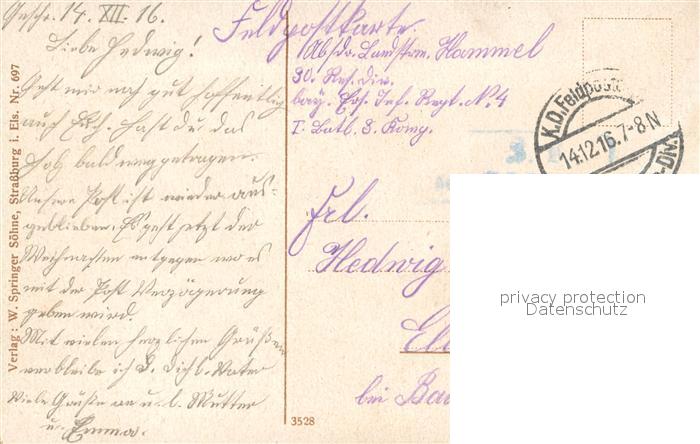 Geschr. 14. XII. 16.
Liebe Hedwig!
Geht mir noch gut hoffentlich
auch Euch. Hast du das
Holz bald weggetragen.
Unsere Post ist wieder aus-
geblieben. Es geht jetzt der
Weihnachten entgegen wo es
mit der Post Verzögerung
geben wird.
Mit vielen herzlichen Grüßen
verbleibe ich D. Dich l. Vater
Viele Grüße an u. l. Mutter
u. Emma.
Verlag: W. Springer Söhne, Straßburg i. Els. Nr. 697
Feldpostkarte.
Abs. Landstm. Hammel
30. Res. Div.
bay. Ers. Inf. Regt. N. 4
I. Batl. 3. Komp.
K.D. Feldpost
14.12.16. 7-8 N
Frl.
Hedwig
bei
3528
privacy protection
Datenschutz